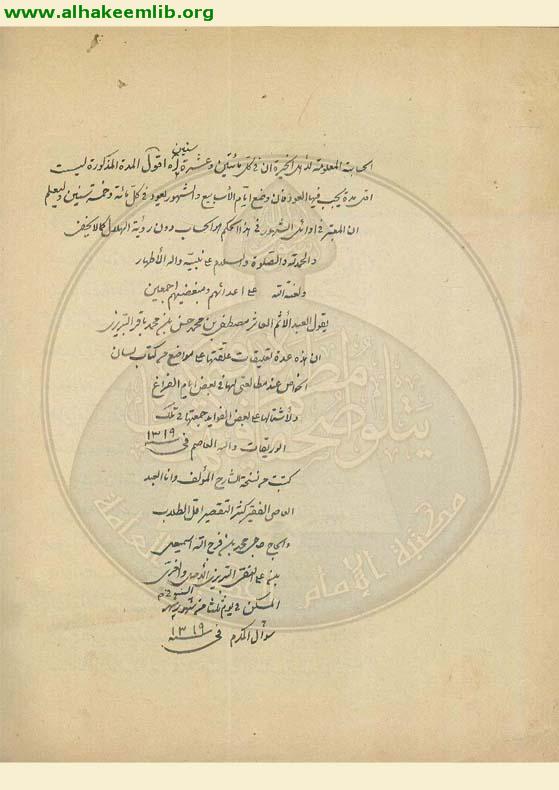 www.alhakeemlib.org
سنين
الحسابية المعلومة لاهل الخبرة ان في كل مائتين وعشرة اقول المدة المذكورة ليست
اقل مدة يجب فيها العود فان وضع ايام الأسابيع والشهور يعود في كل مائة وخمسة سنين وليعلم
ان المعتبر في اوائل الشهور في هذا الحكم هو الحساب دون رؤية الهلال كما لا يخفى
والحمد لله والصلوة والسلام على نبيه واله الأطهار
ولعنة الله على اعدائهم ومبغضيهم اجمعين
يقول العبد الأثم العاثر مصطفى بن محمد حسن بن محمد باقر التبريزي
ان هذه عدة تعليقات علقتها على مواضع من كتاب لسان
الخواص عند مطالعتي لها في بعض ايام الفراغ
ولاشتمالها على بعض الفوايد جمعتها في تلك
الوريقات والله العاصم في سنة ١٣١٩
كتبت من نسخة الشارح المؤلف وانا العبد
العاصي الفقير كثير التقصير اقل الطلاب
والحاج حاجي محمد بن فرج الله
التبريزي
المسكن في يوم من شهور
شوال المكرم في سنة ١٣١٩